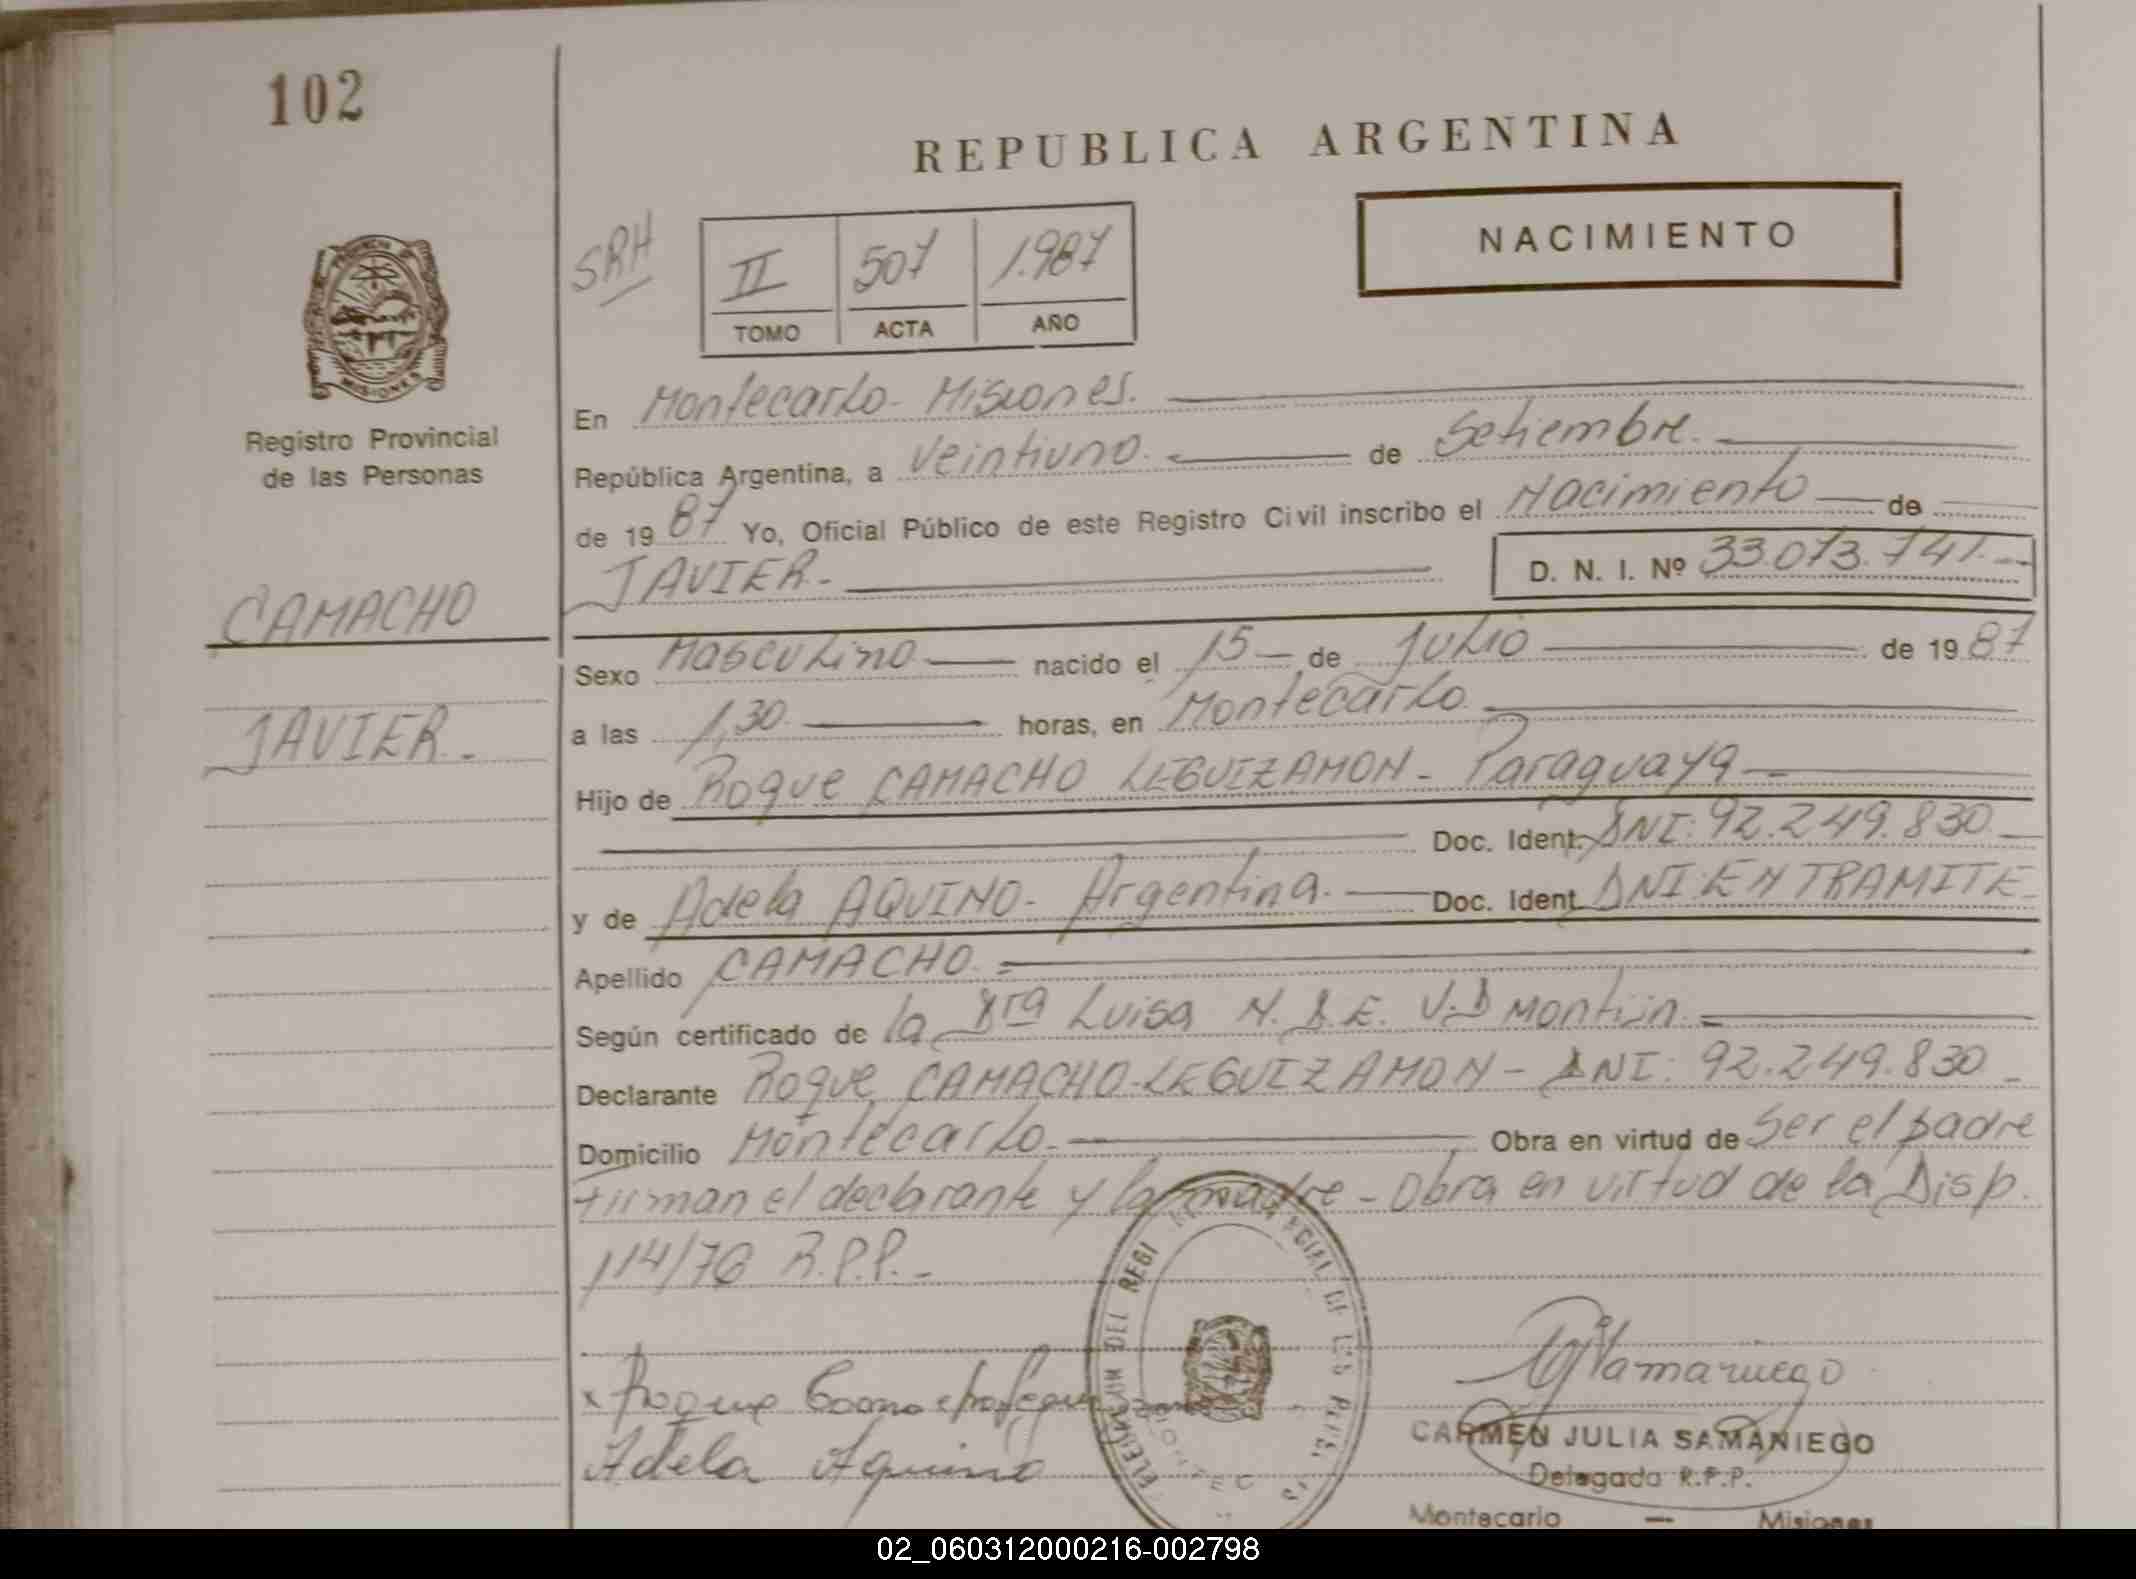 102
REPUBLICA ARGENTINA
NACIMIENTO
SRH
II 507 1.987
TOMO ACTA AÑO
MISIONES
Registro Provincial
de las Personas
En Montecarlo - Misiones.
República Argentina, a Veintiuno. de Setiembre.
de 19 87 Yo, Oficial Público de este Registro Civil inscribo el Nacimiento de
JAVIER.- D. N. I. Nº 33.073.741.-
CAMACHO
JAVIER.-
Sexo Masculino nacido el 15 de Julio de 19 87
a las 1,30 horas, en Montecarlo.
Hijo de Roque CAMACHO LEGUIZAMON - Paraguaya -
Doc. Ident. DNI: 92.249.830 -
y de Adela AQUINO - Argentina. - Doc. Ident. DNI: EN TRAMITE -
Apellido CAMACHO. -
Según certificado de la Dra Luisa N. D E. V.D
Declarante Roque CAMACHO LEGUIZAMON - DNI: 92.249.830 -
Domicilio Montecarlo - Obra en virtud de Ser el padre
firman el declarante y la madre - Obra en virtud de la Disp.
114/76 R.P.P. -
x Roque Camacho
Adela Aquino
CARMEN JULIA SAMANIEGO
Delegada R.P.P.
Montecarlo — Misiones
02_060312000216-002798